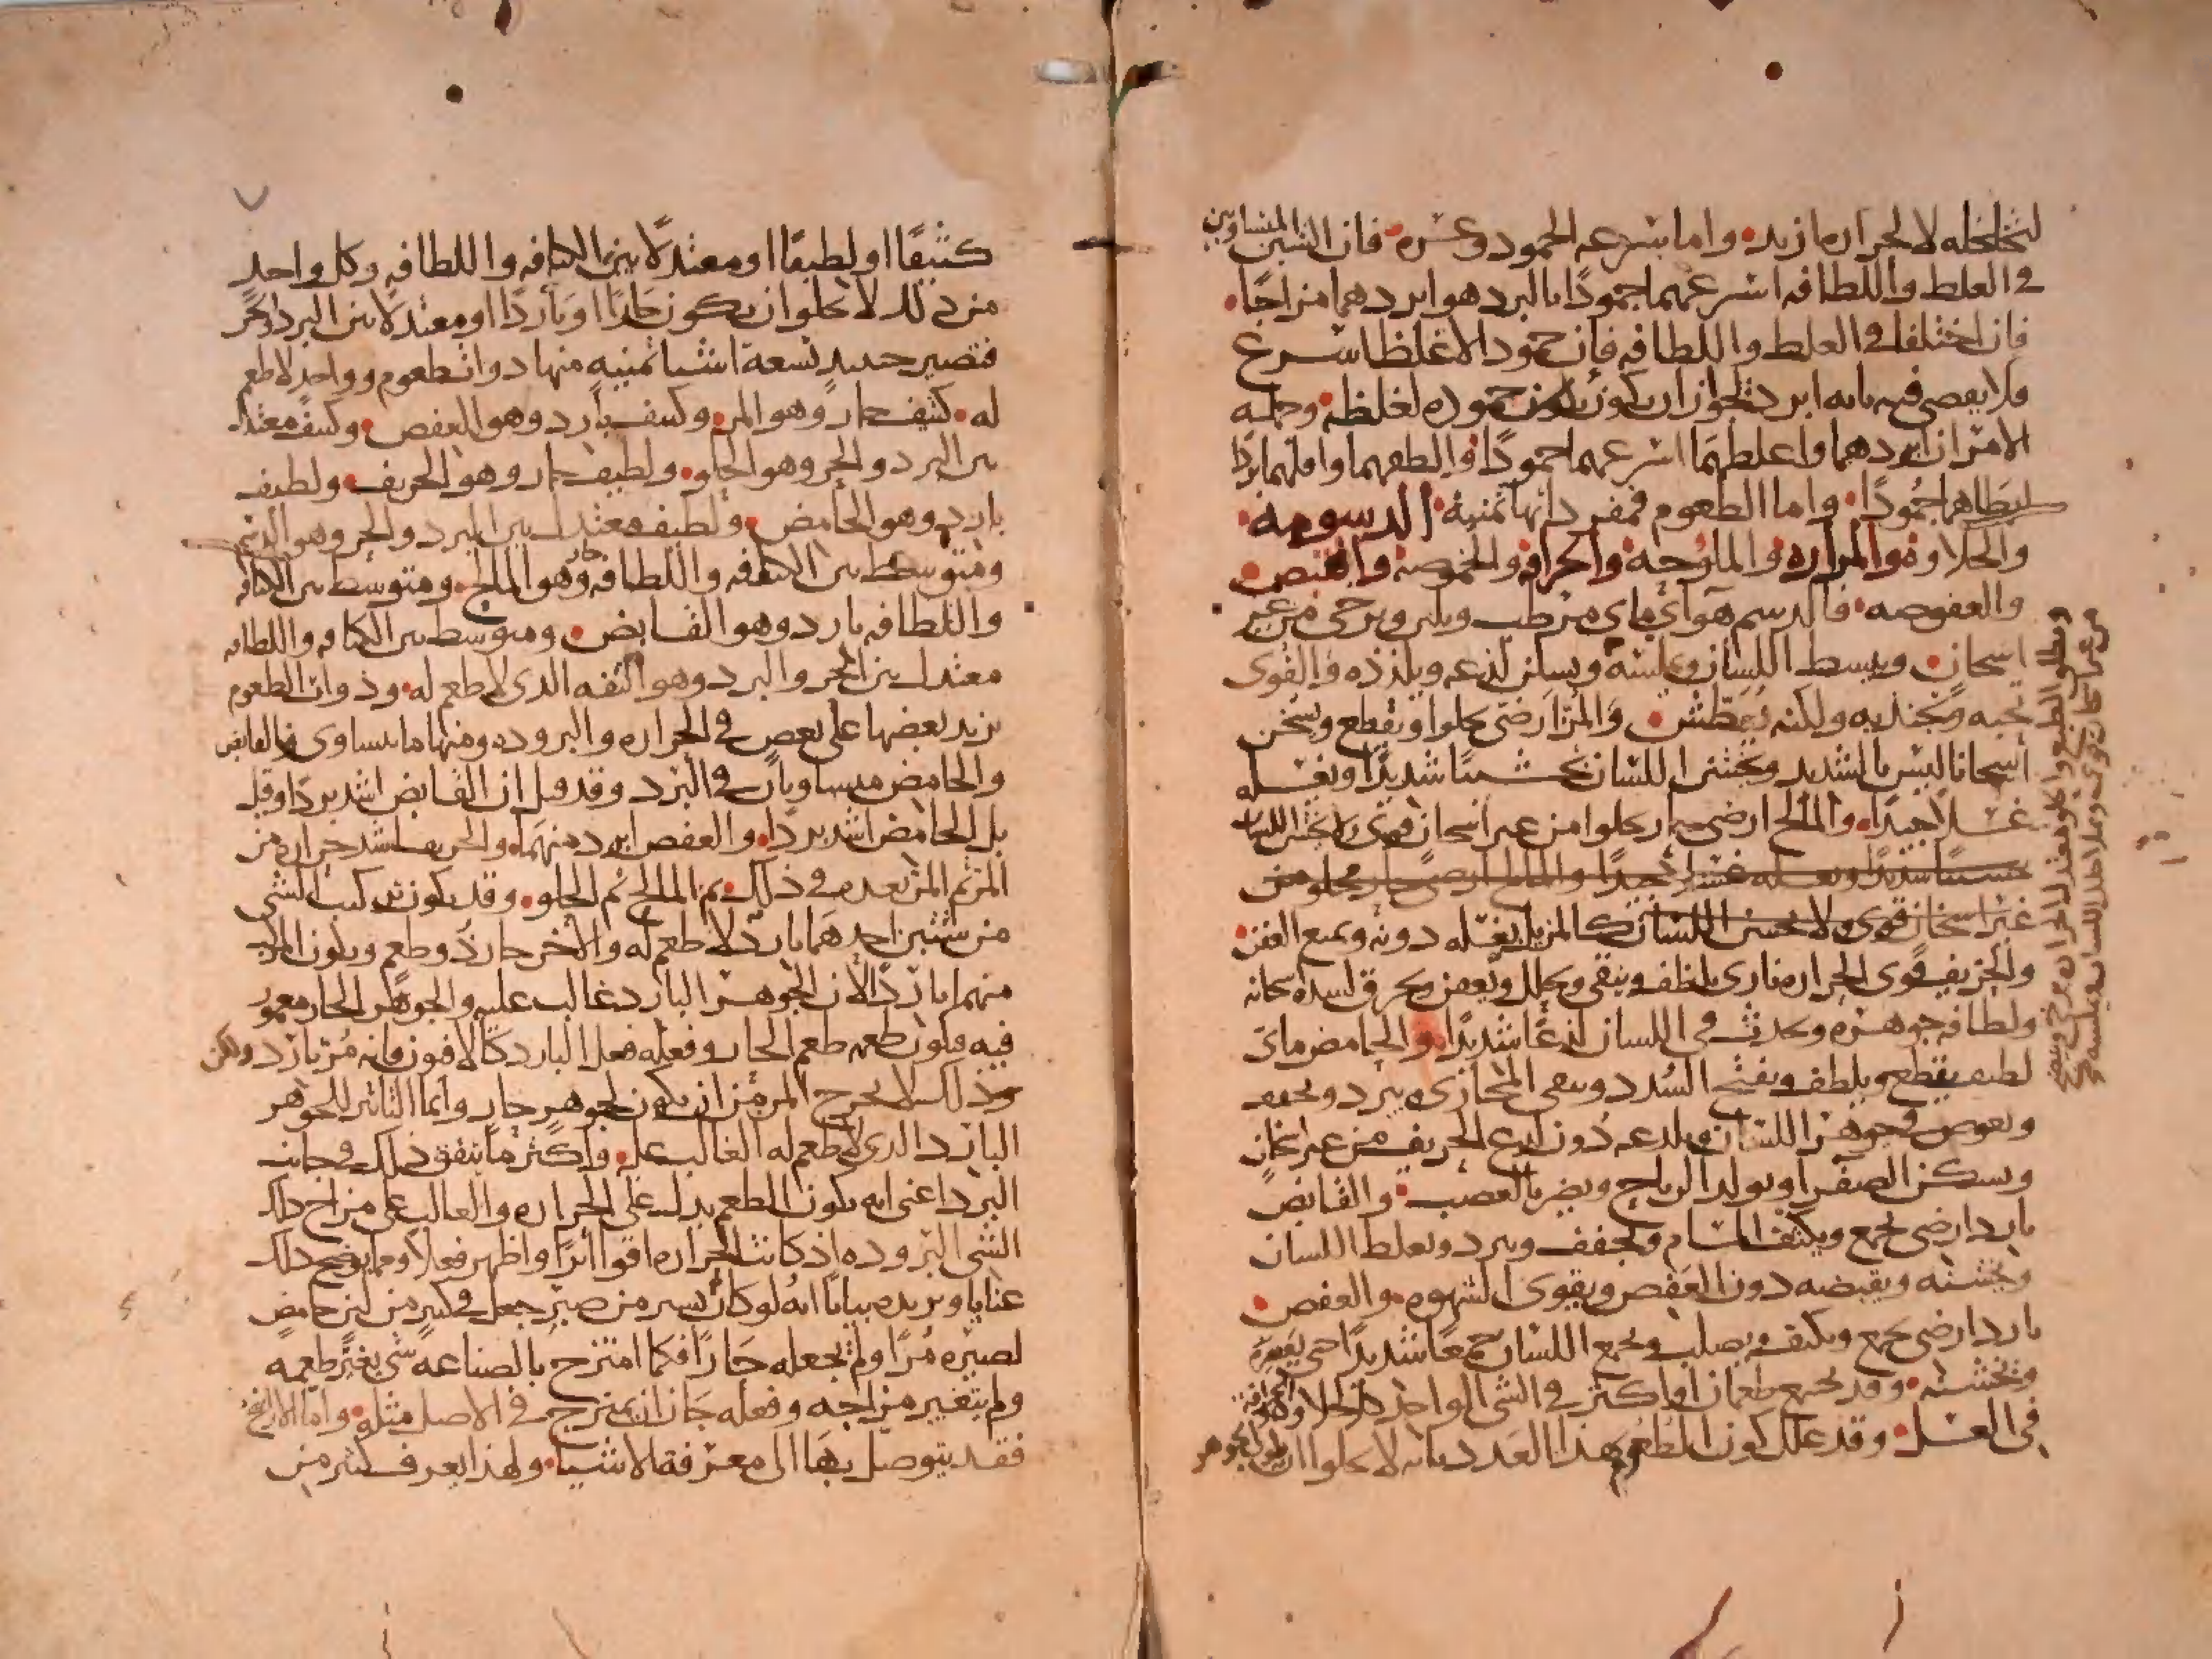 لتخلخله لا لحراره ازيد واما بسرعه الجمود وعسره فان الشيئين المتساويين
في الغلظ واللطافه اسرعهما جمودًا بالبرد هو ابردهما مزاجًا
فان اختلفا في الغلظ واللطافه فان جمود الاغلظ اسرع
ولا يقضي فيه بانه ابرد لجواز ان يكون جموده لغلظه وجمله
الامر ان ابردهما واغلظهما اسرعهما جمودًا والطفهما واقلهما بردًا
ابطاهما جمودًا واما الطعوم فمفرداتها ثمنية الدسومه
والحلاوه والمراره والملوحه والحرافه والحموضه والقبض
والعفوصه فالدسم هوآي ماي مرطب ويلين ويرخي من غير
اسخان ويبسط اللسان ويملسه ويسكن لذعه ويلذذه والقوى
تحبه وتجذبه ولكنه يعطش والمر ارضي يجلوا ويقطع ويسخن
اسخانا ليس بالشديد ويخشن اللسان تخشينًا شديدًا ويغسله
غسلاً جيدًا والمالح ارضي حار يجلوا من غير اسخان قوي ولا يخشن اللسان
تخشينًا شديدًا ويغسله غسلا جيدًا والمالح ارضي حار يجلو من
غير اسخان قوي ولا يخشن اللسان كالمر بل يغسله دونه ويمنع العفن
والحريف قوى الحراره ناري يلطف وينقي ويحلل ويعفن ويحرق لشده سخانه
ولطافه جوهره ويحدث في اللسان لذعًا شديدًا والحامض ماي
لطيف يقطع ويلطف ويفتح السدد وينقي المجاري ويبرد ويجفف
ويغوص في جوهر اللسان ويلذعه دون لذع الحريف من غير اسخان
ويسكن الصفرا ويولد الرياح ويضر بالعصب والقابض
بارد ارضي يجمع ويكثف المسام ويجفف ويبرد ويغلظ اللسان
ويخشنه ويقبضه دون العفص ويقوى الشهوه والعفص
بارد ارضي يجمع ويكثف ويصلب ويجمع اللسان جمعًا شديدًا حتى
ويخشنه وقد يجتمع طعمان او اكثر في الشي الواحد كالحلاوه والحرافه
في العسل وقد علل كون الطعوم بهذا العدد بانه لا يخلوا اما ان يكون الجوهر
والحلو الطبع واكله معتدل الحراره يرخي وينضج
من غير اسخان قوي ويملا خلل اللسان ويملسه
كثيفًا او لطيفًا او معتدلاً بين الكثافه واللطافه وكل واحد
من ذلك لا يخلوا ان يكون حارًا او باردًا او معتدلاً بين البرد والحر
فتصير حينيذ تسعة اشيا ثمنيه منها ذوات طعوم وواحد لا طعم
له كثيف حار وهو المر وكثيف بارد وهو العفص وكثيف معتدل
بين البرد والحر وهو الحلو ولطيف حار وهو الحريف ولطيف
بارد وهو الحامض ولطيف معتدل بين البرد والحر وهو الدسم
ومتوسط بين الكثافه واللطافه حار وهو المالح ومتوسط بين الكثافه
واللطافه بارد وهو القابض ومتوسط بين الكثافه واللطافه
معتدل بين الحر والبرد وهو التفه الذي لا طعم له وذوات الطعوم
يزيد بعضها على بعض في الحراره والبروده ومنها ما يتساوى فالقابض
والحامض متساويان في البرد وقد قيل ان القابض اشد بردًا وقيل
بل الحامض اشد بردًا والعفص ابرد منهما والحريف اشد حراره من
المر ثم المر بعده في ذلك ثم المالح ثم الحلو وقد يكون تركيب الشي
من شيئين احدهما بارد لا طعم له والاخر حار ذو طعم ويكون المركب
منهما باردًا لان الجوهر البارد غالب عليه والجوهر الحار مغمور
فيه فيكون طعمه طعم الحار وفعله فعل البارد كالافيون فانه مر بارد ولكن
ذلك لا يخرج المر من ان يكون لجوهر حار وانما التاثير للجوهر
البارد الذي لا طعم له الغالب عليه واكثر ما يتفق ذلك في جانب
البرد اعني انه يكون الطعم يدل على الحراره والغالب على مزاج ذلك
الشي البروده اذ كانت الحراره اقوا اثرًا واظهر فعلاً ومما يوضح ذلك
عندنا ويزيده بيانًا انه لو كان يسير من صبر جعل في كثير من لبن حامض
لصيره مرًا ولم يجعله حارًا فكما امتزج بالصناعه شي يغير طعمه
ولم يتغير مزاجه وفعله جاز ان يمتزج في الاصل مثله واما الارايح
فقد يتوصل بها الى معرفة الاشيا ولهذا يعرف كثير من